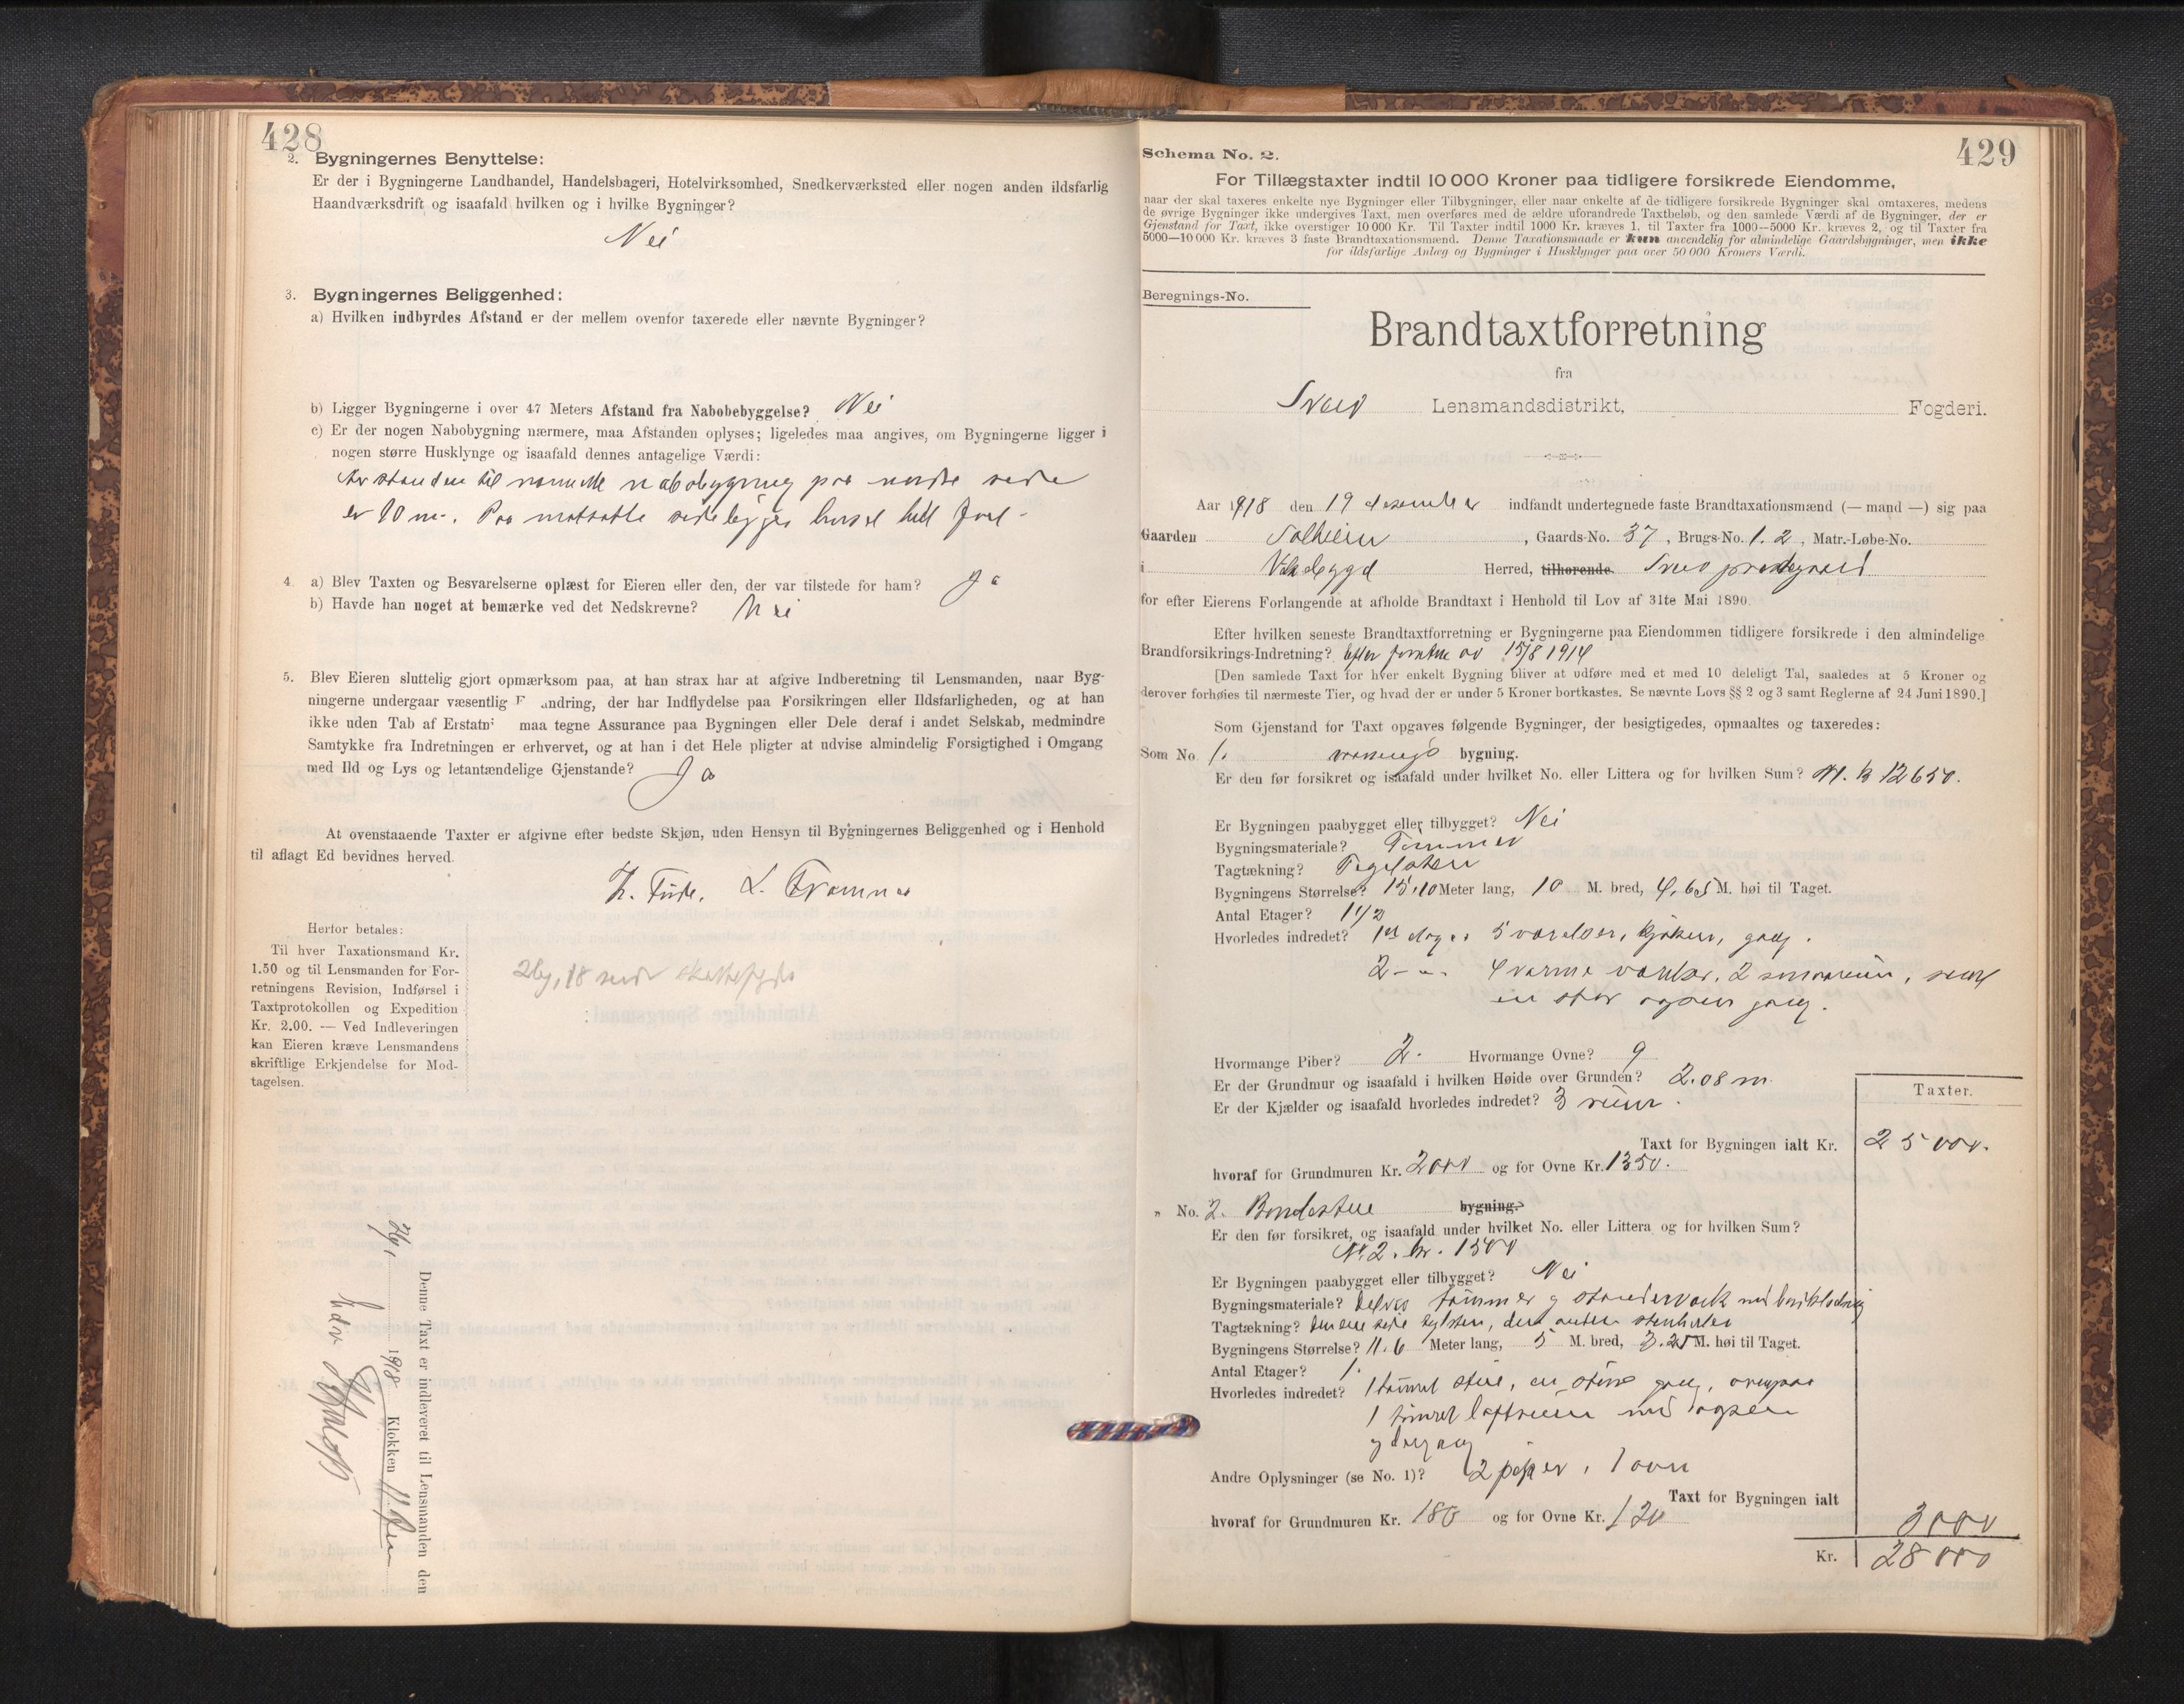 428
2. Bygningernes Benyttelse:
Er der i Bygningerne Landhandel, Handelsbageri, Hotelvirksomhed, Snedkerværksted eller nogen anden ildsfarlig
Haandværksdrift og isaafald hvilken og i hvilke Bygninger?
Nei
3. Bygningernes Beliggenhed:
a) Hvilken indbyrdes Afstand er der mellem ovenfor taxerede eller nævnte Bygninger?
b) Ligger Bygningerne i over 47 Meters Afstand fra Nabobebyggelse? Nei
c) Er der nogen Nabobygning nærmere, maa Afstanden oplyses; ligeledes maa angives, om Bygningerne ligger i
nogen større Husklynge og isaafald dennes antagelige Værdi:
Avstanden til nabobygning paa side
er 10 m. Paa motsatte side ligger huset helt
4. a) Blev Taxten og Besvarelserne oplæst for Eieren eller den, der var tilstede for ham? Ja
b) Havde han noget at bemærke ved det Nedskrevne? Nei
5. Blev Eieren sluttelig gjort opmærksom paa, at han strax har at afgive Indberetning til Lensmanden, naar Byg-
ningerne undergaar væsentlig F andring, der har Indflydelse paa Forsikringen eller Ildsfarligheden, og at han
ikke uden Tab af Erstatn maa tegne Assurance paa Bygningen eller Dele deraf i andet Selskab, medmindre
Samtykke fra Indretningen er erhvervet, og at han i det Hele pligter at udvise almindelig Forsigtighed i Omgang
med Ild og Lys og letantændelige Gjenstande? Ja
At ovenstaaende Taxter er afgivne efter bedste Skjøn, uden Hensyn til Bygningernes Beliggenhed og i Henhold
til aflagt Ed bevidnes herved.
L.
Herfor betales:
Til hver Taxationsmand Kr.
1.50 og til Lensmanden for For-
retningens Revision, Indførsel i
Taxtprotokollen og Expedition
Kr. 2.00. — Ved Indleveringen
kan Eieren kræve Lensmandens
skriftlige Erkjendelse for Mod-
tagelsen.
Denne Taxt er indleveret til Lensmanden den
1918 Klokken 11
429
Schema No. 2.
For Tillægstaxter indtil 10 000 Kroner paa tidligere forsikrede Eiendomme,
naar der skal taxeres enkelte nye Bygninger eller Tilbygninger, eller naar enkelte af de tidligere forsikrede Bygninger skal omtaxeres, medens
de øvrige Bygninger ikke undergives Taxt, men overføres med de ældre uforandrede Taxtbeløb, og den samlede Værdi af de Bygninger, der er
Gjenstand for Taxt, ikke overstiger 10 000 Kr. Til Taxter indtil 1000 Kr. kræves 1, til Taxter fra 1000—5000 Kr. kræves 2, og til Taxter fra
5000—10 000 Kr. kræves 3 faste Brandtaxationsmænd. Denne Taxationsmaade er kun anvendelig for almindelige Gaardsbygninger, men ikke
for ildsfarlige Anlæg og Bygninger i Husklynger paa over 50 000 Kroners Værdi.
Beregnings-No.
Brandtaxtforretning
fra
Sveio Lensmandsdistrikt, Fogderi.
Aar 1918 den 19 desember indfandt undertegnede faste Brandtaxationsmænd (— mand —) sig paa
Gaarden Solheim, Gaards-No. 37, Brugs-No. 1. 2, Matr.-Løbe-No.
i Valebygd Herred, tilhørende Sveio prestegaard
for efter Eierens Forlangende at afholde Brandtaxt i Henhold til Lov af 31te Mai 1890.
Efter hvilken seneste Brandtaxtforretning er Bygningerne paa Eiendommen tidligere forsikrede i den almindelige
Brandforsikrings-Indretning? Efter forretn. av 15/8 1914
[Den samlede Taxt for hver enkelt Bygning bliver at udføre med et med 10 deleligt Tal, saaledes at 5 Kroner og
derover forhøies til nærmeste Tier, og hvad der er under 5 Kroner bortkastes. Se nævnte Lovs §§ 2 og 3 samt Reglerne af 24 Juni 1890.]
Som Gjenstand for Taxt opgaves følgende Bygninger, der besigtigedes, opmaaltes og taxeredes:
Som No 1. vaanings bygning.
Er den før forsikret og isaafald under hvilket No. eller Littera og for hvilken Sum? N1. kr 12650.
Er Bygningen paabygget eller tilbygget? Nei
Bygningsmateriale? Tømmer
Tagtækning? Teglsten
Bygningens Størrelse? 15,10 Meter lang, 10 M. bred, 4,65 M. høi til Taget.
Antal Etager? 1 1/2
Hvorledes indredet? 1ste etage: 5 værelser, kjøken, gang.
2 - " - 4 varme værelser, 2 smaarum, samt
en stor open gang.
Hvormange Piber? 2. Hvormange Ovne? 9
Er der Grundmur og isaafald i hvilken Høide over Grunden? 2.08 m.
Er der Kjælder og isaafald hvorledes indredet? 3 rum.
Taxter.
Taxt for Bygningen ialt Kr. 25000.
hvoraf for Grundmuren Kr. 2000 og for Ovne Kr. 1350.
" No. 2. Bondestue bygning.
Er den før forsikret, og isaafald under hvilket No. eller Littera og for hvilken Sum?
N. 2. kr. 1300
Er Bygningen paabygget eller tilbygget? Nei
Bygningsmateriale? Delvis tømmer og standerverk med bordklædning
Tagtækning? Den ene side teglsten, den anden stenheller
Bygningens Størrelse? 11.6 Meter lang, 5 M. bred, 3.25 M. høi til Taget.
Antal Etager? 1.
Hvorledes indredet? 1 tømret stue, en større gang, ovenpaa
1 tømret loftsrum med open
Andre Oplysninger (se No. 1)? 2 piper, 1 ovn
Taxt for Bygningen ialt 3000
hvoraf for Grundmuren Kr. 180 og for Ovne Kr. 120
Kr. 28000